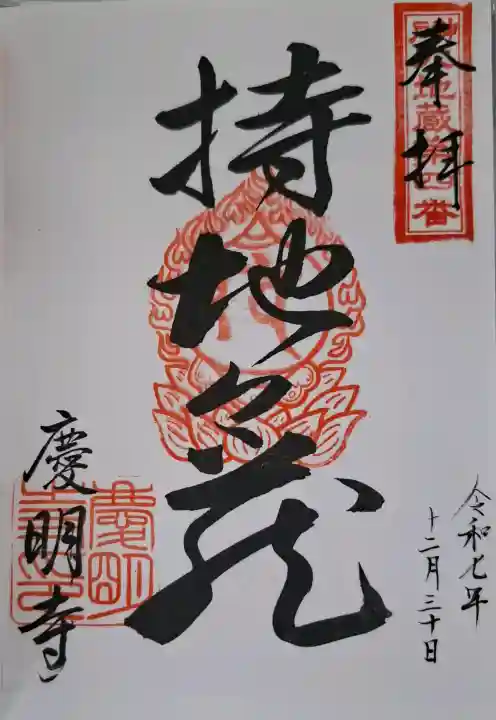 奉拝
地蔵
番
持地々蔵
令和七年
十二月三十日
慶明寺
慶明